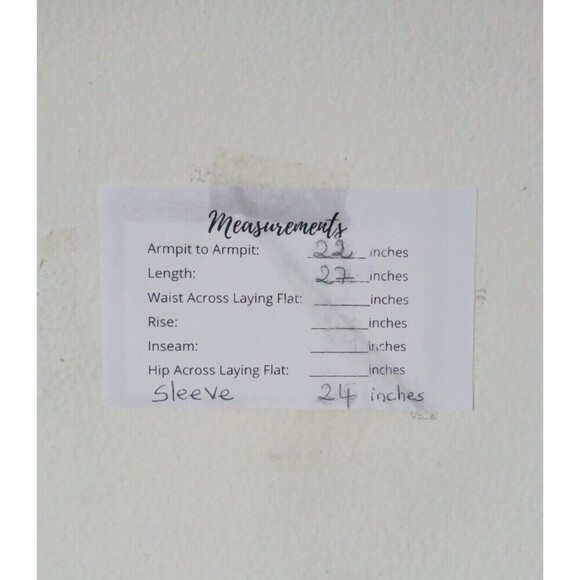 Measurements
Armpit to Armpit: 22 inches
Length: 27 inches
Waist Across Laying Flat: ______inches
Rise: ______inches
Inseam: ______inches
Hip Across Laying Flat: ______inches
Sleeve 24 inches